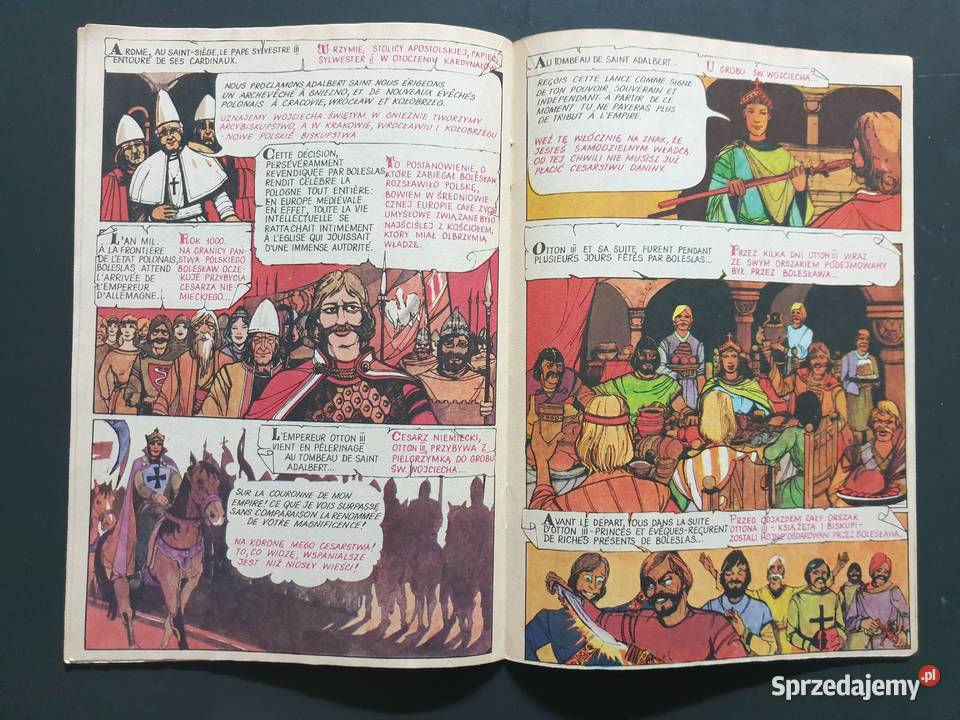 A ROME, AU SAINT-SIÈGE, LE PAPE SYLVESTRE II
ENTOURE DE SES CARDINAUX.
W RZYMIE, STOLICY APOSTOLSKIEJ, PAPIEŻ
SYLWESTER II W OTOCZENIU KARDYNAŁÓW
NOUS PROCLAMONS ADALBERT SAINT. NOUS ÉRIGEONS
UN ARCHEVÊCHÉ À GNIEZNO, ET DE NOUVEAUX ÉVÊCHÉS
POLONAIS À CRACOVIE, WROCŁAW ET KOŁOBRZEG.
UZNAJEMY WOJCIECHA ŚWIĘTYM W GNIEZNIE TWORZYMY
ARCYBISKUPSTWO, A W KRAKOWIE, WROCŁAWIU I KOŁOBRZEGU
NOWE POLSKIE BISKUPSTWA.
CETTE DÉCISION,
PERSÉVÉRAMMENT
REVENDIQUÉE PAR BOLESLAS,
RENDIT CÉLÈBRE LA
POLOGNE TOUT ENTIÈRE:
EN EUROPE MEDIEVALE
EN EFFET, TOUTE LA VIE
INTELLECTUELLE SE
RATTACHAIT INTIMEMENT
À L'EGLISE QUI JOUISSAIT
D'UNE IMMENSE AUTORITÉ.
TO POSTANOWIENIE, O
KTÓRE ZABIEGAŁ BOLESŁAW
ROZSŁAWIŁO POLSKĘ,
BOWIEM W ŚREDNIOWIE-
CZNEJ EUROPIE CAŁE ŻYCIE
UMYSŁOWE ZWIĄZANE BYŁO
NAJŚCIŚLEJ Z KOŚCIOŁEM,
KTÓRY MIAŁ OLBRZYMIĄ
WŁADZĘ.
L'AN MIL.
À LA FRONTIÈRE
DE L'ETAT POLONAIS,
BOLESLAS ATTEND
L'ARRIVÉE DE
L'EMPEREUR
D'ALLEMAGNE...
ROK 1000.
NA GRANICY PAŃ-
STWA POLSKIEGO
BOLESŁAW OCZE-
KUJE PRZYBYCIA
CESARZA NIE-
MIECKIEGO...
L'EMPEREUR OTTON III
VIENT EN PÈLERINAGE
AU TOMBEAU DE SAINT
ADALBERT...
CESARZ NIEMIECKI,
OTTON III, PRZYBYWA Z
PIELGRZYMKĄ DO GROBU
ŚW. WOJCIECHA...
SUR LA COURONNE DE MON
EMPIRE! CE QUE JE VOIS SURPASSE
SANS COMPARAISON LA RENOMMÉE
DE VOTRE MAGNIFICENCE!
NA KORONĘ MEGO CESARSTWA!
TO, CO WIDZĘ, WSPANIALSZE
JEST NIŻ NIOSŁY WIEŚCI!
AU TOMBEAU DE SAINT ADALBERT...
U GROBU ŚW. WOJCIECHA...
REÇOIS CETTE LANCE COMME SIGNE
DE TON POUVOIR SOUVERAIN ET
INDÉPENDANT. A PARTIR DE CE
MOMENT TU NE PAYERAS PLUS
DE TRIBUT A L'EMPIRE.
WEŹ TĘ WŁÓCZNIĘ NA ZNAK, ŻE
JESTEŚ SAMODZIELNYM WŁADCĄ.
OD TEJ CHWILI NIE MUSISZ JUŻ
PŁACIĆ CESARSTWU DANINY.
OTTON III ET SA SUITE FURENT PENDANT
PLUSIEURS JOURS FÊTÉS PAR BOLESLAS...
PRZEZ KILKA DNI OTTON III WRAZ
ZE SWYM ORSZAKIEM PODEJMOWANY
BYŁ PRZEZ BOLESŁAWA...
AVANT LE DÉPART, TOUS DANS LA SUITE
D'OTTON III - PRINCES ET ÉVÊQUES - REÇURENT
DE RICHES PRÉSENTS DE BOLESLAS...
PRZED ODJAZDEM CAŁY ORSZAK
OTTONA III - KSIĄŻĘTA I BISKUPI-
ZOSTALI HOJNIE OBDAROWANI PRZEZ BOLESŁAWA.
Sprzedajemy.pl